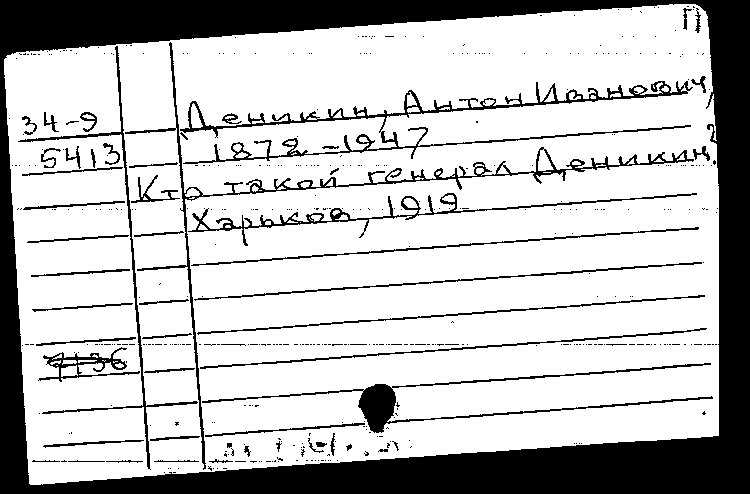 П)
34-9 Деникин, Антон Иванович,
5413 1872-1947
Кто такой генерал Деникин?
Харьков, 1919
7136